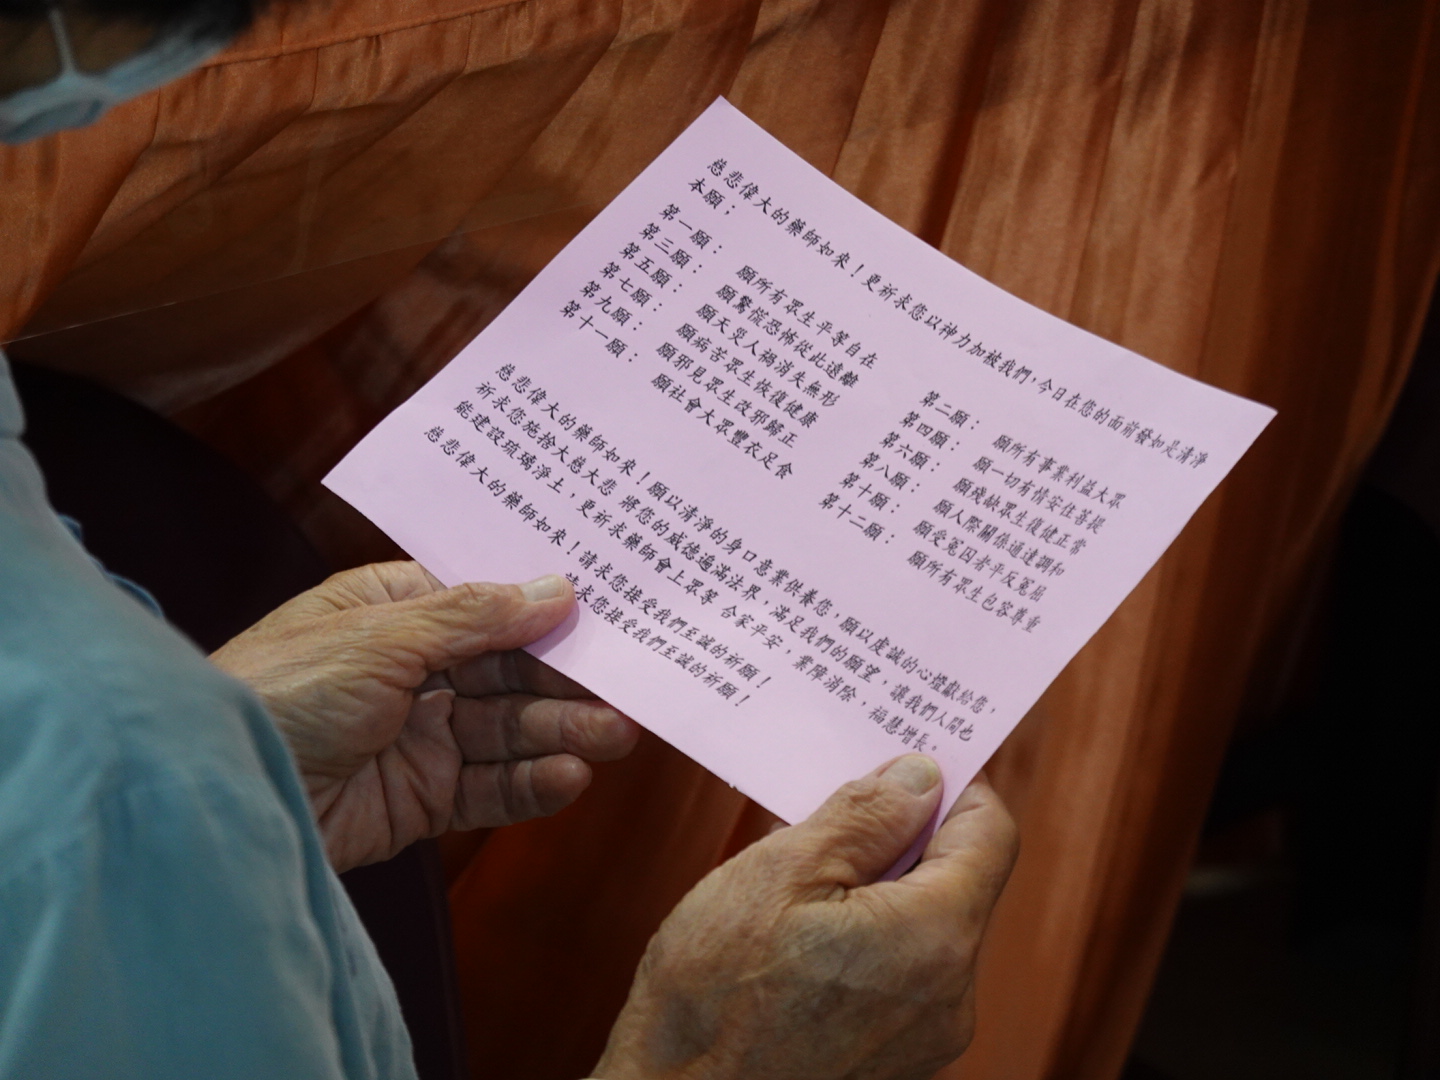 慈悲偉大的藥師如來！更祈求您以神力加被我們，今日在您的面前發如是清淨
本願；
第一願： 願所有眾生平等自在 第二願： 願所有事業利益大眾
第三願： 願驚慌恐怖從此遠離 第四願： 願一切有情安住菩提
第五願： 願天災人禍消失無形 第六願： 願殘缺眾生復健正常
第七願： 願病苦眾生恢復健康 第八願： 願人際關係通達調和
第九願： 願邪見眾生改邪歸正 第十願： 願受冤囚者平反冤屈
第十一願： 願社會大眾豐衣足食 第十二願： 願所有眾生包容尊重
慈悲偉大的藥師如來！願以清淨的身口意業供養您，願以虔誠的心燈獻給您，
祈求您施捨大慈大悲 將您的威德遍滿法界，滿足我們的願望，讓我們人間也
能建設琉璃淨土，更祈求藥師會上眾等 合家平安，業障消除，福慧增長。
慈悲偉大的藥師如來！請求您接受我們至誠的祈願！
請求您接受我們至誠的祈願！